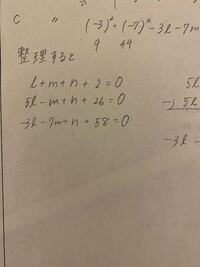 C 〃 (-3)²+(-7)²-3l-7m
9 49
整理すると
l+m+n+2=0
5l-m+n+26=0
-3l-7m+n+58=0
5l
-) 5l
-3l-